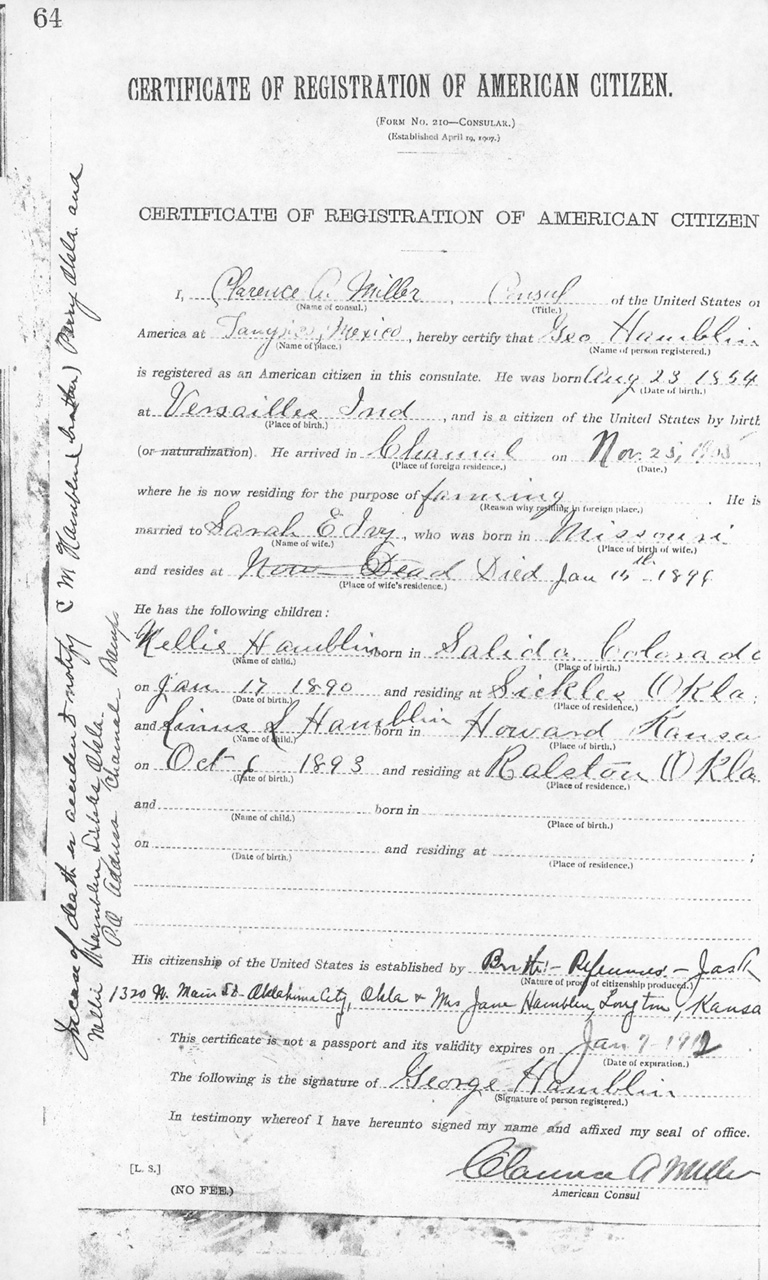 64
CERTIFICATE OF REGISTRATION OF AMERICAN CITIZEN.
(FORM NO. 210—CONSULAR.)
(Established April 19, 1907.)
CERTIFICATE OF REGISTRATION OF AMERICAN CITIZEN
I, Clarence A. Miller, Consul of the United States of
(Name of consul.) (Title.)
America at Mexico, hereby certify that Geo Hamblin
(Name of place.) (Name of person registered.)
is registered as an American citizen in this consulate. He was born Aug 23
(Date of birth.)
at Versailles Ind, and is a citizen of the United States by birth
(Place of birth.)
(or naturalization). He arrived in Chamal on Nov. 25,
(Place of foreign residence.) (Date.)
where he is now residing for the purpose of farming. He is
(Reason why residing in foreign place.)
married to Sarah E Ivy, who was born in Missouri
(Name of wife.) (Place of birth of wife.)
and resides at Now Dead Died Jan 15th
(Place of wife's residence.)
He has the following children:
Nellie Hamblin born in Salida Colorado
(Name of child.) (Place of birth.)
on Jan. 17 1890 and residing at Sickles Okla.
(Date of birth.) (Place of residence.)
and Linus L Hamblin born in Howard Kansa
(Name of child.) (Place of birth.)
on Oct 6 1893 and residing at Ralston Okla
(Date of birth.) (Place of residence.)
and born in
(Name of child.) (Place of birth.)
on and residing at ;
(Date of birth.) (Place of residence.)
His citizenship of the United States is established by Birth - References - Jas
(Nature of proof of citizenship produced.)
1320 W. Main St- Oklahoma City, Okla & Mrs Jane Hamblin, Longton, Kansa
This certificate is not a passport and its validity expires on Jan 7-1912
(Date of expiration.)
The following is the signature of George Hamblin
(Signature of person registered.)
In testimony whereof I have hereunto signed my name and affixed my seal of office.
[L. S.] Clarence A Miller
(NO FEE.) American Consul
In case of death or accident notify C M Hamblin (brother) Perry Okla. and
Nellie Hamblin Okla.
PO Address Chamal